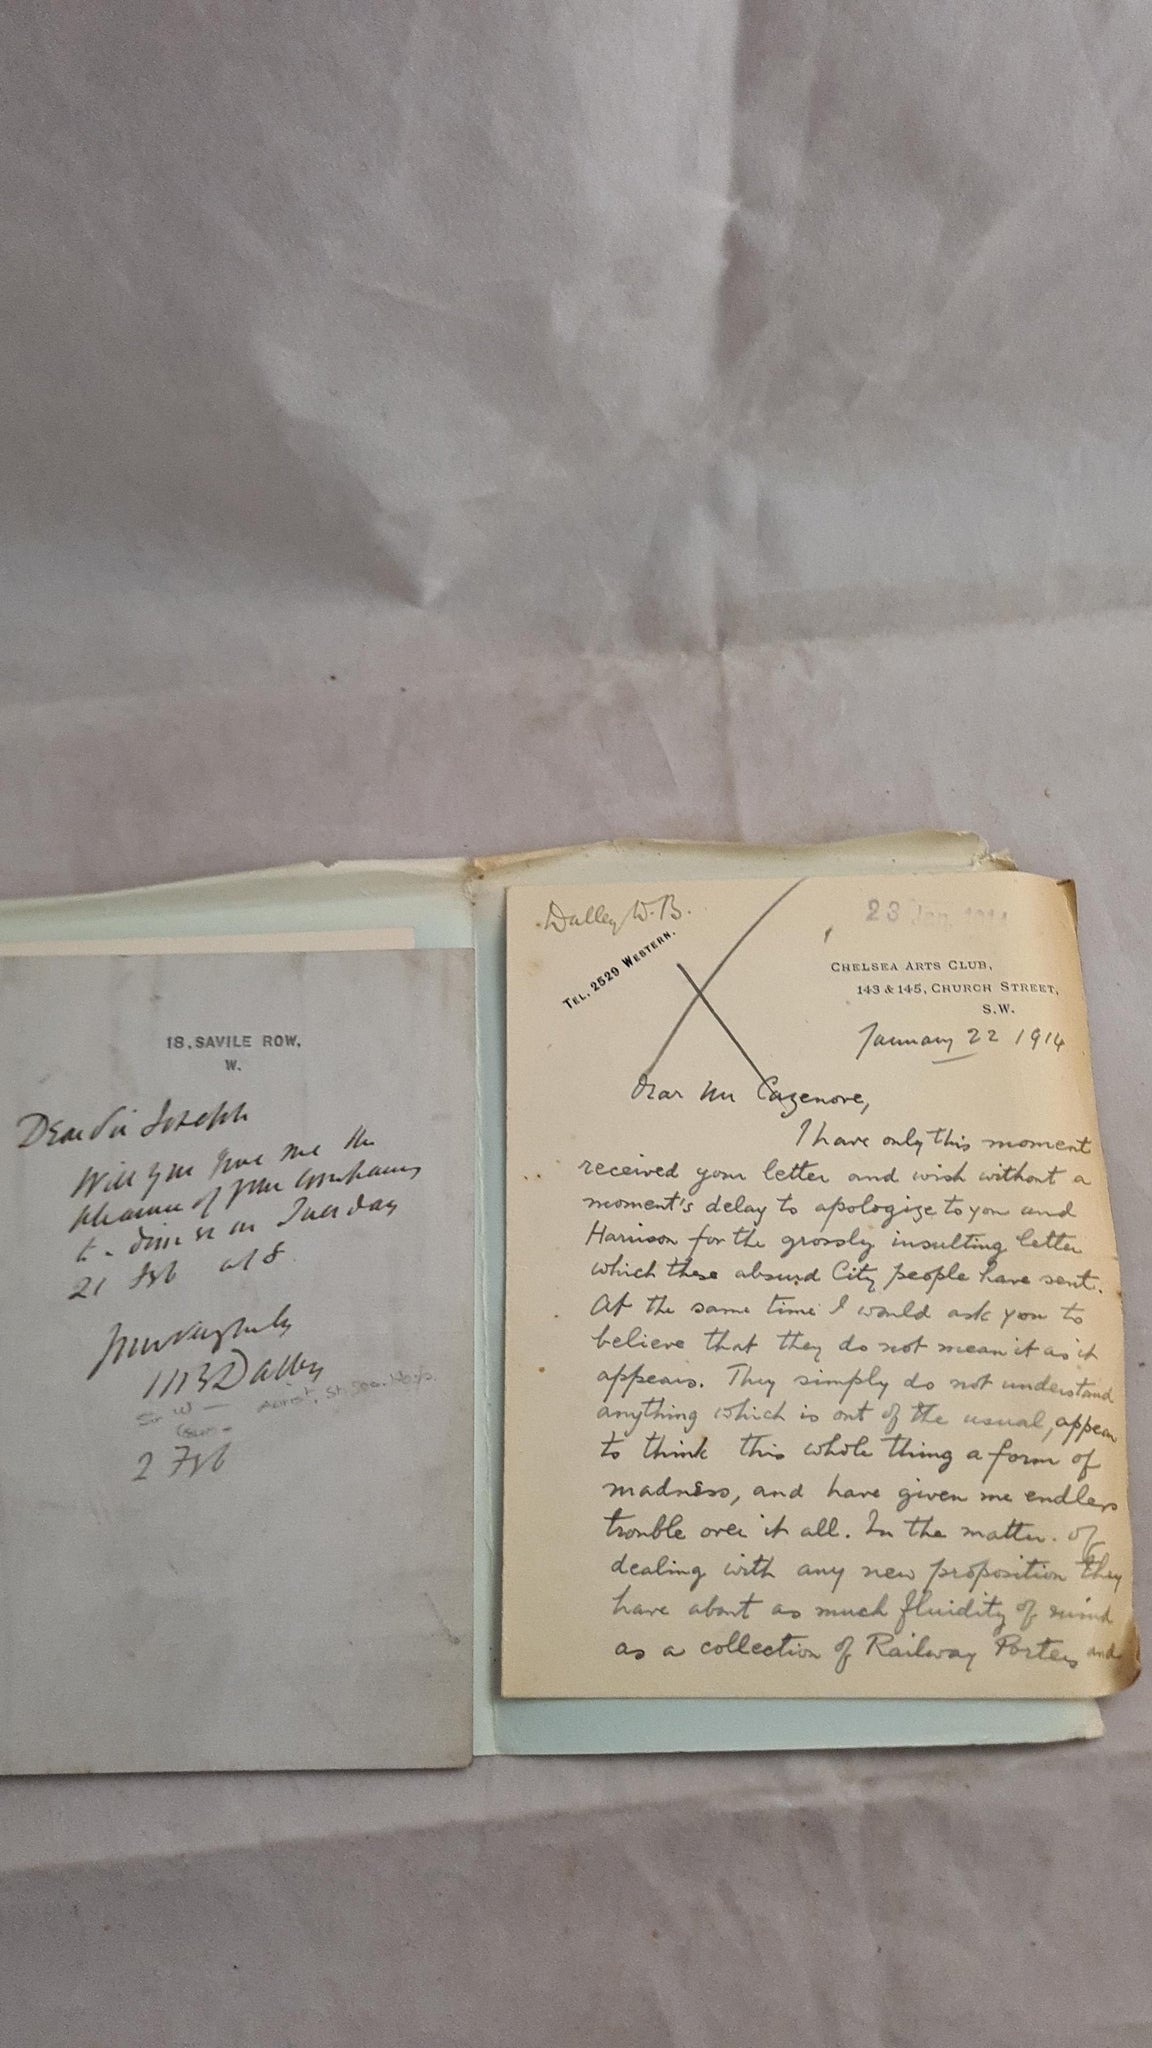 18, SAVILE ROW,
W.
Dear Sir Joseph
Will you give me the
pleasure of your company
to dinner on Tuesday
21 Feb at 8
Yours very truly
W B Dalby
Sir W —
Aurist, St. Geo. Hosp.
2 Feb
Dalley W. B.
TEL. 2529 WESTERN.
23 Jan 1914
CHELSEA ARTS CLUB,
143 & 145, CHURCH STREET,
S.W.
January 22 1914
Dear Mr Cazenove,
I have only this moment
received your letter and wish without a
moment's delay to apologize to you and
Harrison for the grossly insulting letter
which these absurd City people have sent.
At the same time I would ask you to
believe that they do not mean it as it
appears. They simply do not understand
anything which is out of the usual, appear
to think this whole thing a form of
madness, and have given me endless
trouble over it all. In the matter of
dealing with any new proposition they
have about as much fluidity of mind
as a collection of Railway Porters and